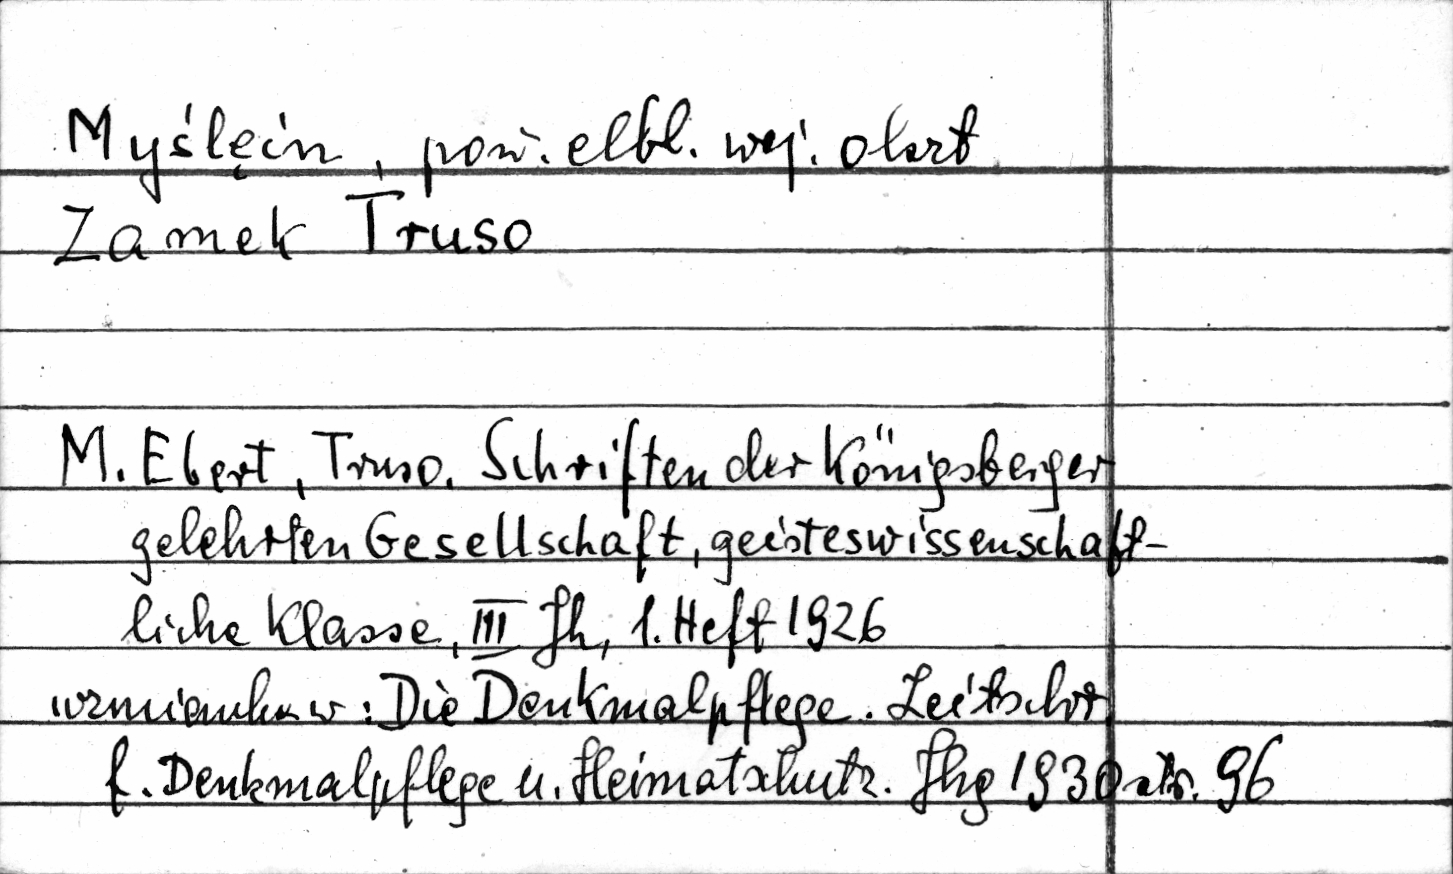 Myślęcin, pow. elbl. woj. olszt
Zamek Truso
M. Ebert, Truso. Schriften der Königsberger
gelehrten Gesellschaft, geisteswissenschaft-
liche Klasse, III Jh, 1. Heft 1926
wzmianka w: Die Denkmalpflege. Zeitschr
f. Denkmalpflege u. Heimatschutz. Jhg 1930 str. 96